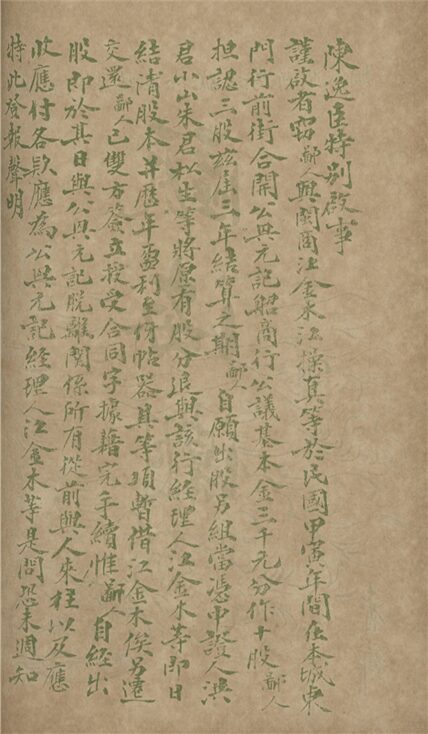 陳逸臣特別啟事
謹啟者竊鄙人與閩商江金水江操真等於民國甲寅年間在本城東
門行前街合開公興元記船商行公議基本金三千元分作十股鄙人
担認三股兹屆三年結算之期鄙人自願出股另組當憑中證人洪
君小山朱君松生等將原有股分退與該行經理人江金水等即日
結清股本并歷年盈利至俏帖器具等項暫借江金木俟另遷
交還鄙人已雙方簽立授受合同字據藉完手續惟鄙人自經出
股即於其日與公興元記脫離関係所有從前與人來往以及應
收應付各欵應為公興元記經理人江金木等是問恐未週知
特此登報聲明